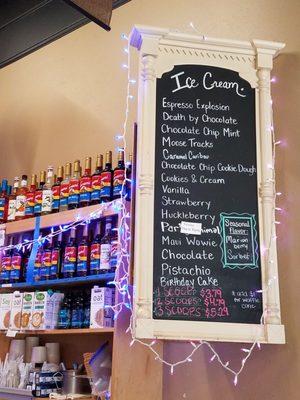 Ice Cream
Espresso Explosion
Death by Chocolate
Chocolate Chip Mint
Moose Tracks
Caramel Caribou
Chocolate Chip Cookie Dough
Cookies & Cream
Vanilla
Strawberry
Huckleberry
Maui Wowie
Chocolate
Pistachio
Birthday Cake
Seasonal
Flavor:
Marion
berry
Sorbet
1 SCOOP $3.79
2 SCOOPS $4.79
3 SCOOPS $5.29
add $1
for waffle
cone
Soy
oat